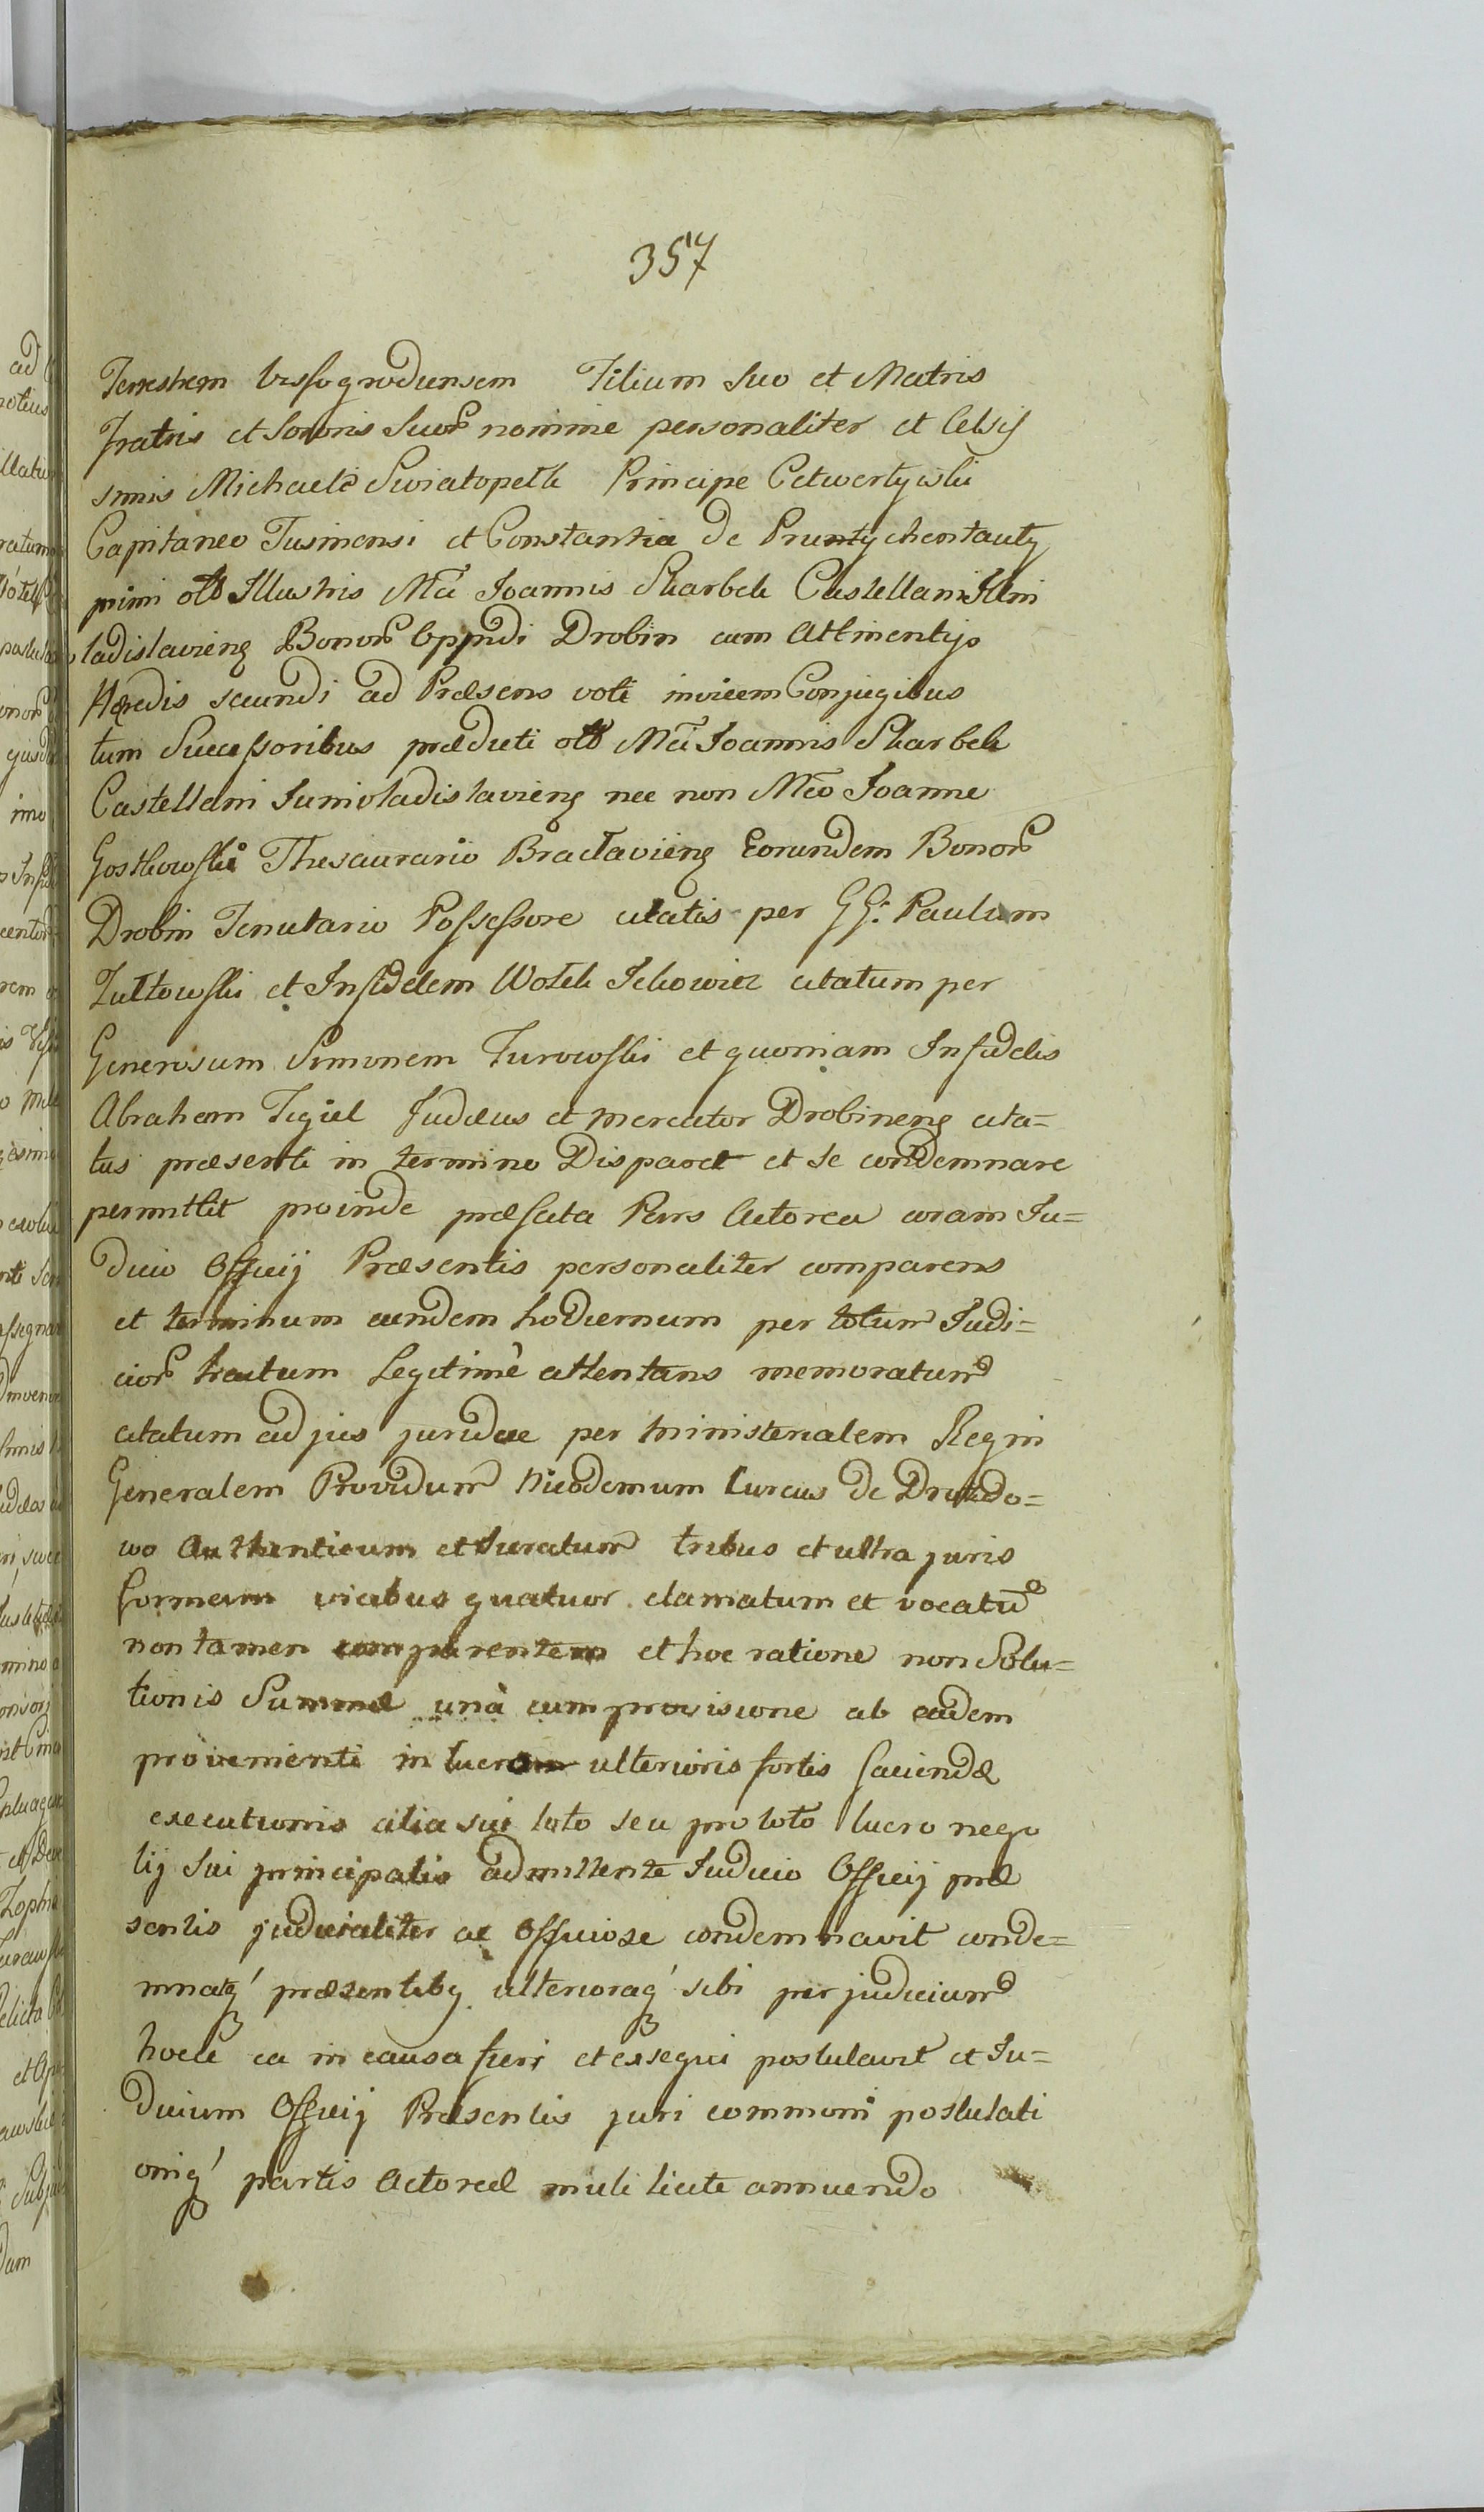 357
Terrestrem Vissogrodensem Filium Suo et Matris
Fratris et Sororis Suor nomine personaliter et Celsis
simis Michaele Swiatopelk Principe Cetwertyiski
Capitaneo Tusinensi et Constantia de
primi olt Illustris Mci Joannis Skarbek Castellani Juni
ladislaviens Bonor Oppidi Drobin cum Attinentijs
Hæredis secundi ad Præsens voti invicem Conjugibus
tum Successoribus prædicti olt Mci Joannis Skarbek
Castellani Junivladislaviens nec non Mco Joanne
Gostkowski Thesaurario Braclaviens Eorundem Bonor
Drobin Tenutario Possessore citatis per GG. Paulum
Zułtowski et Insidelem Wolek Ickowicz citatum per
Generosum Simonem Turowski et quoniam Infidelis
Abraham Tygiel Judæus et mercator Drobinens cita=
tus præsenti in termino Disparet et se condemnare
permittit proinde præfata Pars Actorea coram Ju=
dicio Officij Præsentis personaliter comparens
et terminum eundem hodiernum per totum Judi=
cior tractum Legitimè attentans memoratum
citatum ad jus juridice per ministerialem Regni
Generalem Providum Nicodemum Curcus de
wo Authenticum et Juratum tribus et ultra juris
formam vicibus quatuor clamatum et vocatu
non tamen comparentem et hoc ratione non Solu=
tionis Summæ unà cum provisione ab eadem
provenienti in lucrum ulterioris fortis faciendæ
executionis alia sui toto seu pro toto lucro nego
tij Sui principalis admittente Judicio Officij præ
sentis judicialiter ac Officiose condemnavit conde=
mnatq' præsentiby ulterioraq' sibi per judicium
hocce ea in causa fieri et exsequi postulavit et Ju=
dicium Officij Præsentis juri communi postulati
oniq' partis Actoreæ licite annuendo